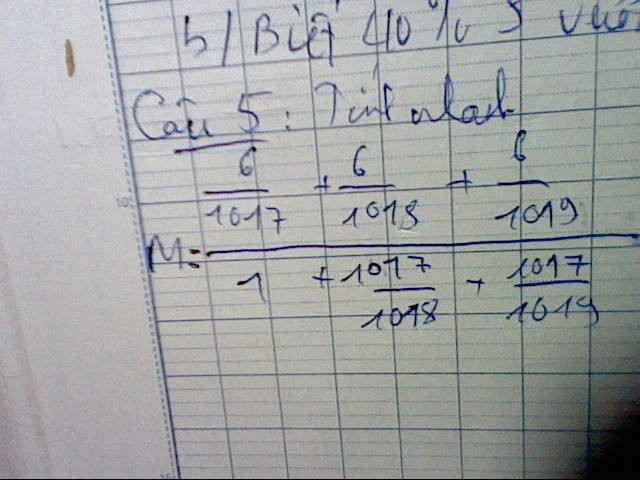 b/ Biết 40% S vườn
Câu 5: Tính nhanh
6/1017 + 6/1018 + 6/1019
M =
1 + 1017/1018 + 1017/1019